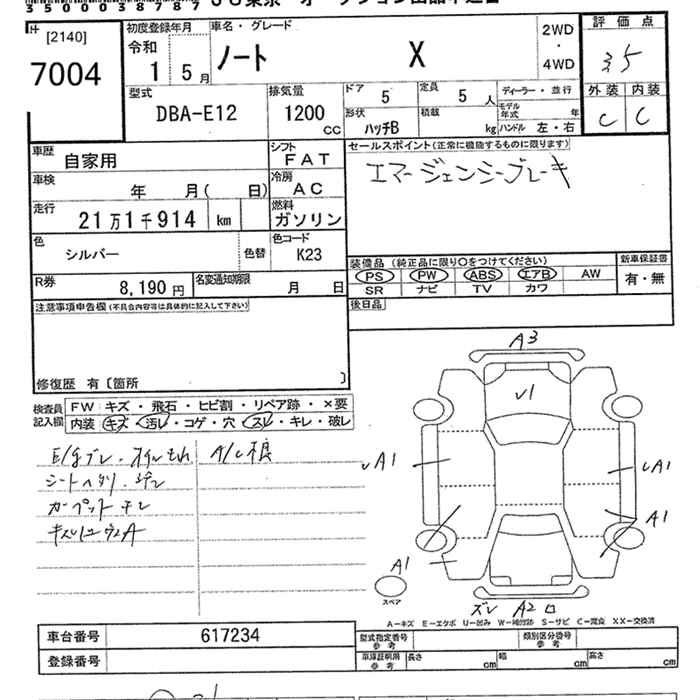 35000038787
[2140]
7004
初度登録年月
令和
1 5月
車名・グレード
ノート X
2WD
・
4WD
評価点
3.5
外装 内装
C C
型式
DBA-E12
排気量
1200
CC
ドア 5
定員 5人
ディーラー・並行
形状 ハッチB
積載 kg
モデル年式 年
ハンドル 左・右
車歴 自家用
シフト FAT
車検 年 月( 日)
冷房 AC
走行 21万1千914 km
燃料 ガソリン
色 シルバー 色替
色コード K23
R券 8,190円
名変通知期限 月 日
セールスポイント(正常に機能するものに限ります)
エマージェンシーブレーキ
装備品(純正品に限り○をつけてください)
PS PW ABS エアB AW
SR ナビ TV カワ
新車保証書
有・無
後日品
注意事項申告欄(不具合内容等は具体的に記入して下さい)
修復歴 有〔箇所 〕
検査員記入欄
FW キズ・飛石・ヒビ割・リペア跡・×要
内装 キズ・汚レ・コゲ・穴・スレ・キレ・破レ
シートヘタリ
A3
U1
A1
A1
A1
A1
スペア
ズレ A2
A-キズ E-エクボ U-凹み W-補修跡 S-サビ C-腐食 XX-交換済
車台番号 617234
登録番号
型式指定番号
参考
類別区分番号
参考
車庫証明用
参考
長さ cm
幅 cm
高さ cm